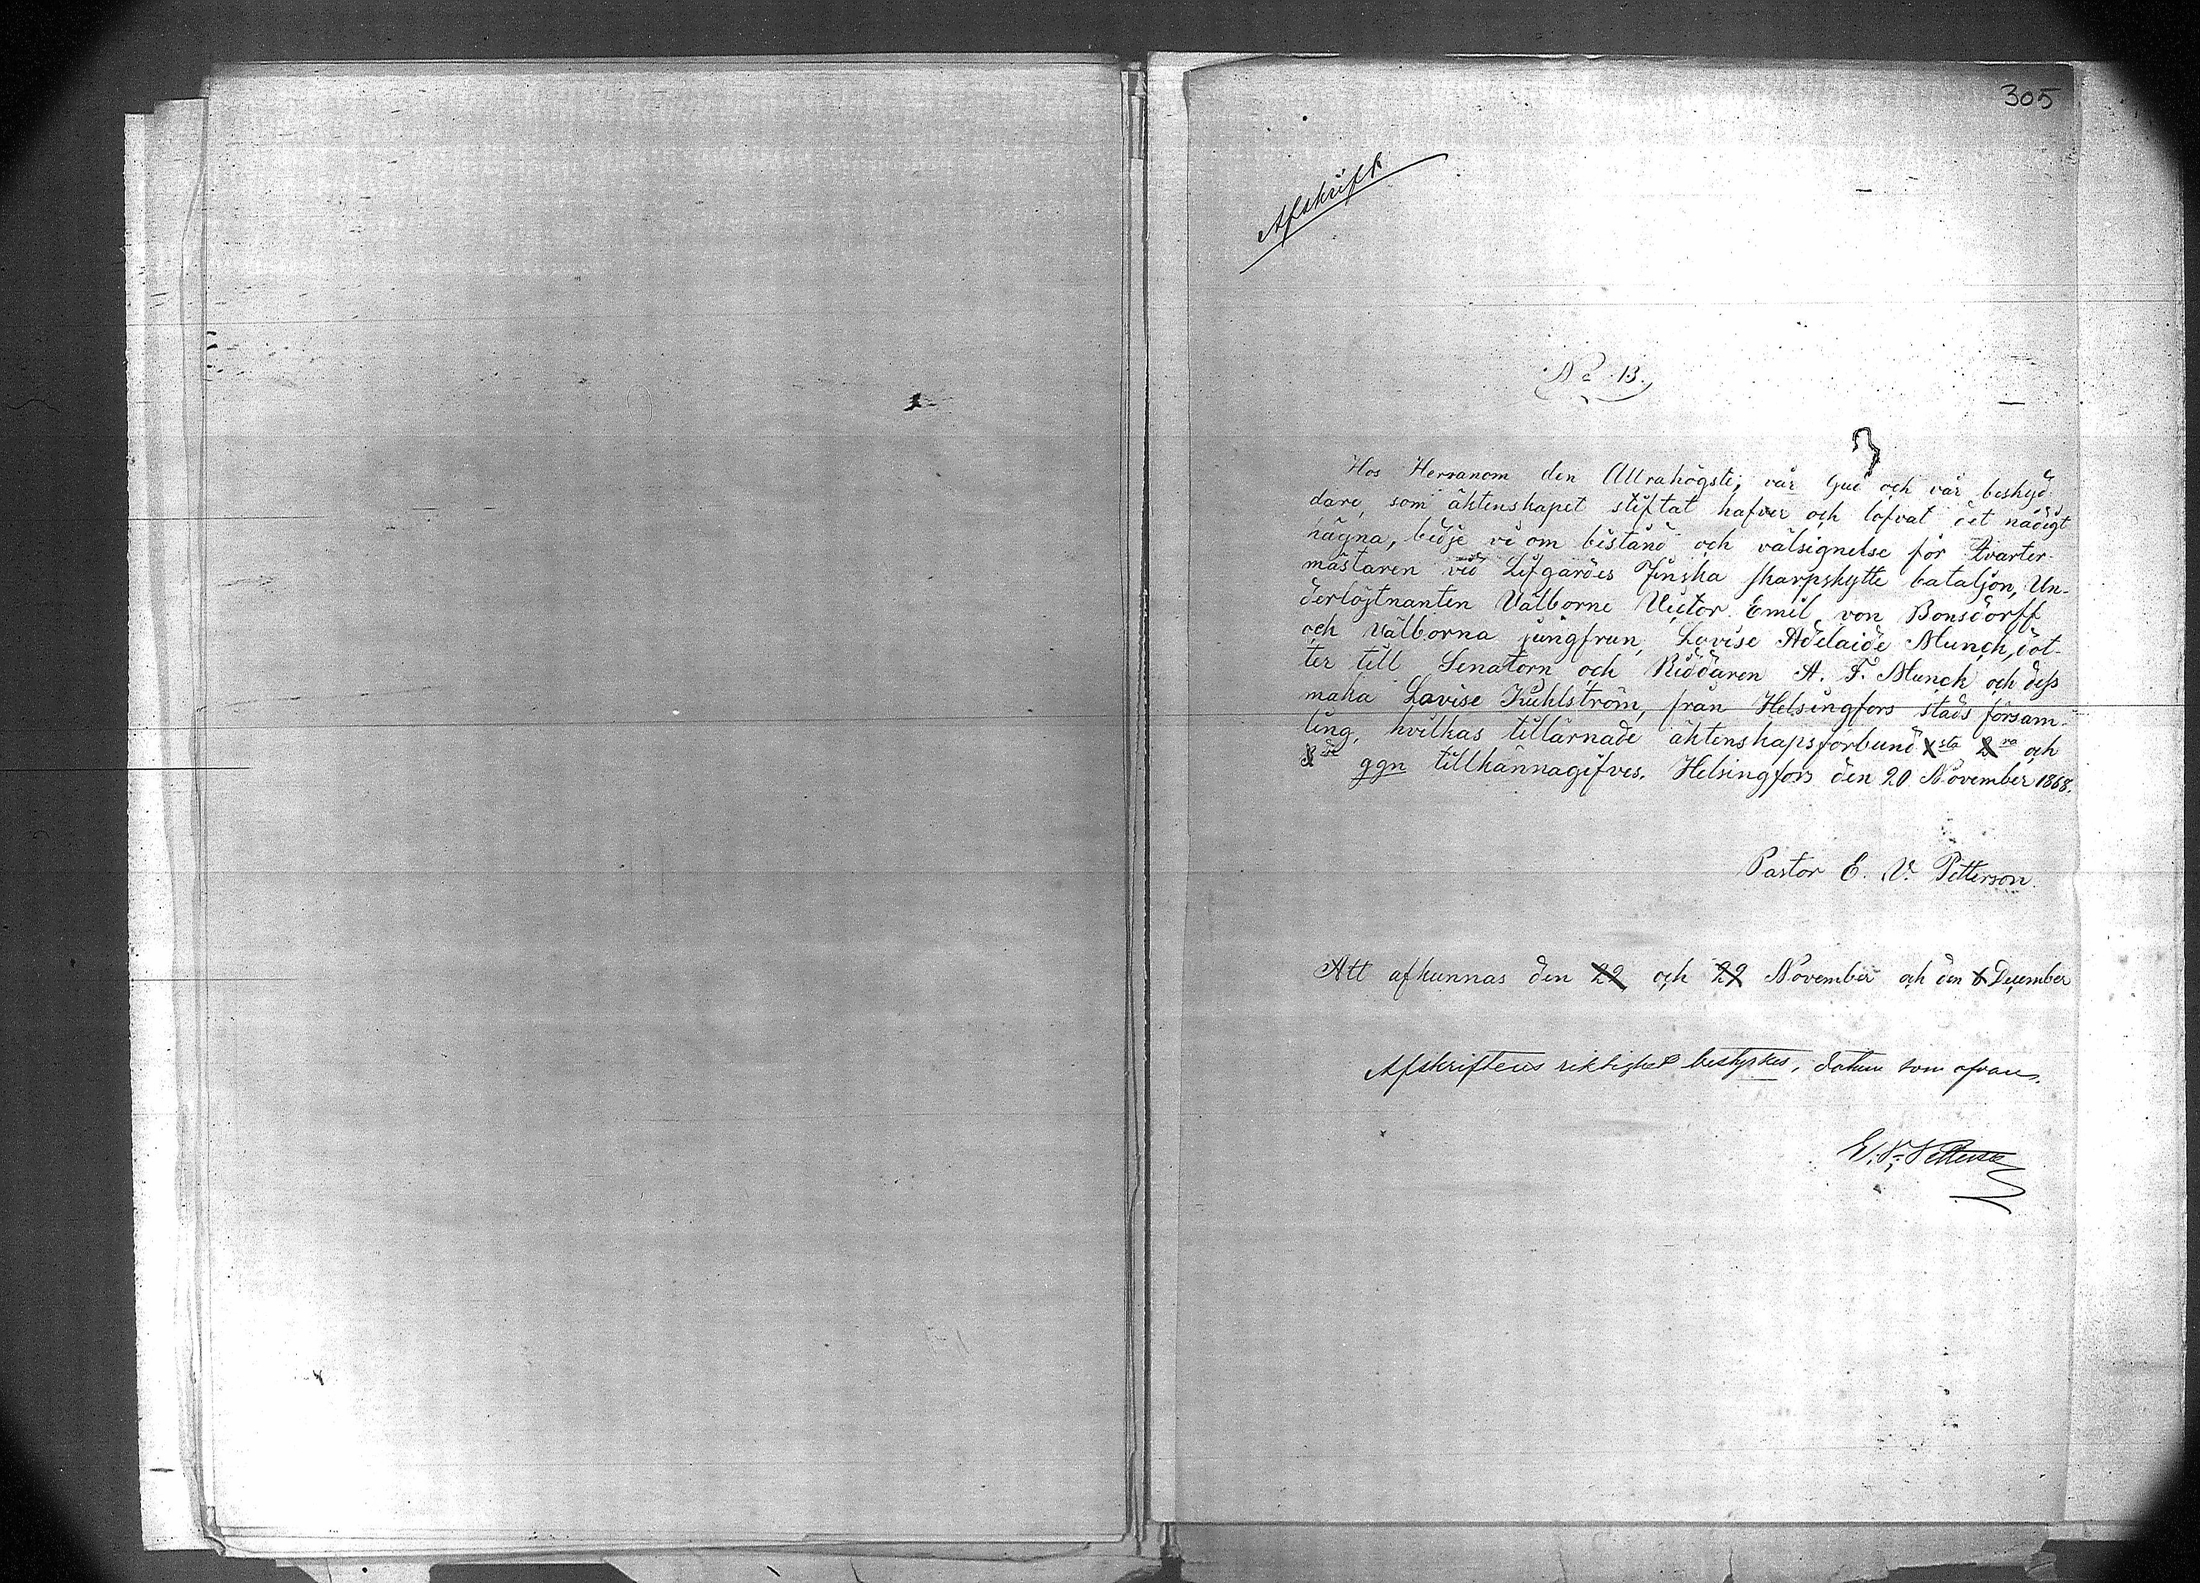 305
Afskrift
No 13.
Hos Herranom den Allrahögste, vår Gud och vår beskyd-
dare, som äktenskapet stiftat hafver och lofvat det nådigt
hägna, bedje vi om bistånd och välsignelse för Qvarter-
mästaren vid Lifgardes Finska skarpskytte bataljon, Un-
derlöjtnanten Välborne Victor Emil von Bonsdorff
och Välborna jungfrun, Lovise Adelaide Munck, dot-
ter till Senatorn och Riddaren A. F. Munck och dess
maka Lovise Kuhlström, från Helsingfors stads försam-
ling, hvilkas tillärnade äktenskapsförbund 1sta 2ra och
3de ggn tillkännagifves. Helsingfors den 20 November 1868.
Pastor E. V. Petterson.
Att afkunnas den 22 och 29 November och den 6 December
Afskriftens riktighet bestyrkes, datum som ofvan.
E. V. Petterson